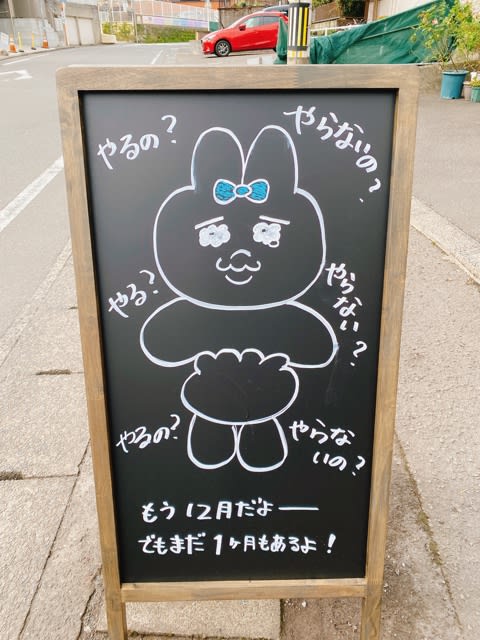 やるの?
やらないの?
やる?
やらない?
やるの?
やらな
いの?
もう12月だよー
でもまだ1ヶ月もあるよ!